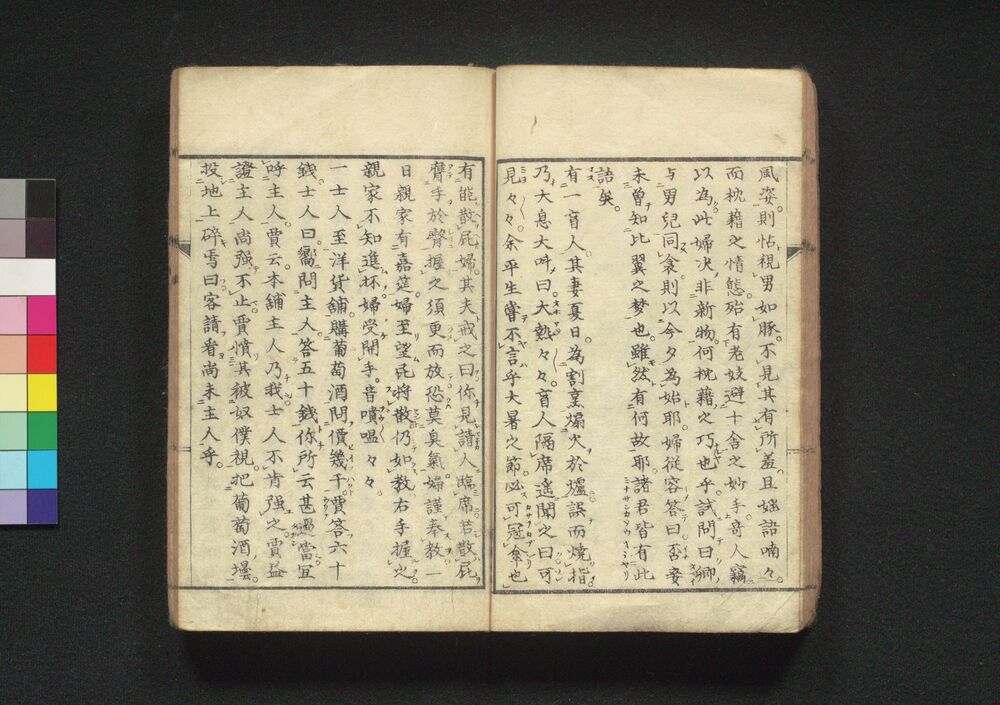 風姿。則怗視男如豚。不見其有所羞。且媱語喃々。
而枕藉之情態。殆有老妓避十舍之妙手。哥人竊
以為此婦决非新物。何枕藉之巧也乎。試問曰。卿
与男兒同衾。則以今夕為始耶。婦従容答曰。否妾
未曽知比翼之梦也。雖然有何故耶。諸君皆有此
語矣。
有一盲人。其妻夏日。為割烹煽火於爐。誤而焼指。
乃大息大呌曰。大熱々々。盲人隔席遙聞之曰。可
見々々。余平生嘗不言乎。大暑之節必可冠傘也
有能散屁婦。其夫戒之曰。你見請人臨席。若散屁
膺手於臀。握之須更而放。恐莫臭氣。婦謹奉教。一
日親家有嘉筵。婦至望屁将散。仍如教右手握之。
親家不知進坏。婦受開手。音噴嗢々々。
一士人至洋貨舗。購葡萄酒。問價幾千。賈答六十
銭。士人曰。嚮問主人。答五十錢。你所云甚過當。冝
呼主人。賈云。本舗主人乃我。士人不肯强之。賈益
證主人。尚强不止。賈憤其被奴僕視。把葡萄酒壜。
投地上碎焉曰。客請看。尚未主人乎。